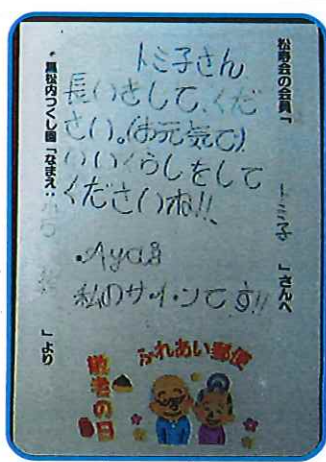 松寿会の会員「 トミ子 」さんへ
トミ子さん
長いきして、くだ
さい。(お元気で)
いいくらしをして
くださいね!!
・Aya
私のサインです!!
黒松内つくし園「なまえ: 」より
ふれあい郵便
敬老の日